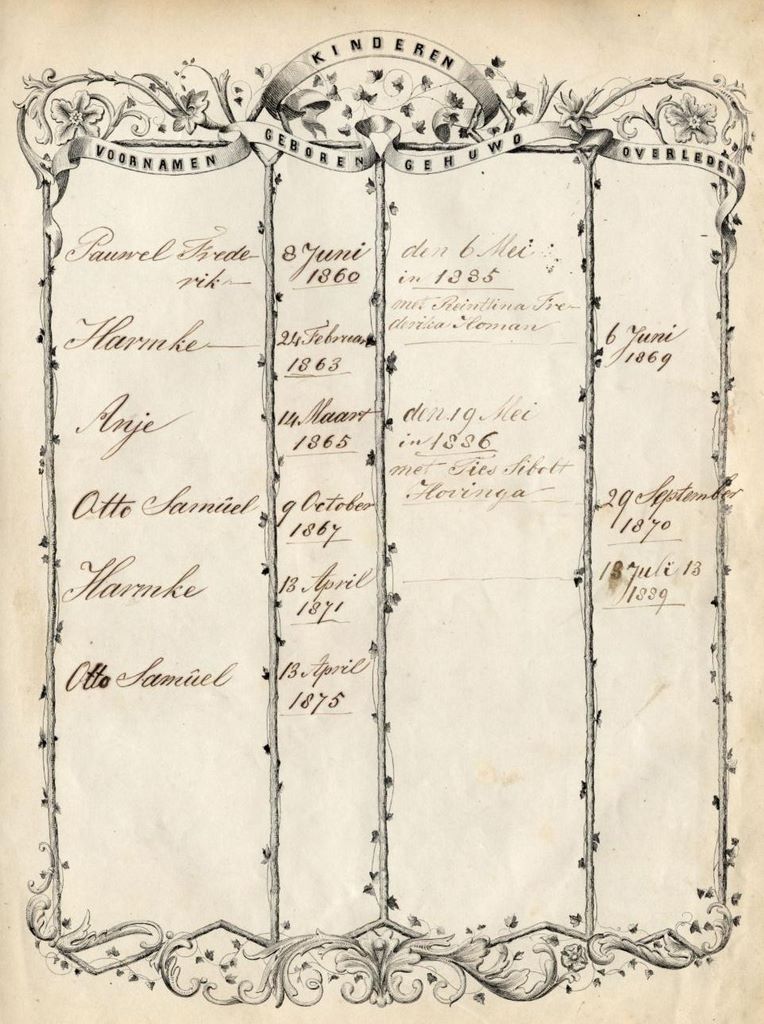 KINDEREN
VOORNAMEN GEBOREN GEHUWD OVERLEDEN
Pauwel Frede- 8 Juni den 6 Mei
rik 1860 in 1885
met Reintlina Fre-
Harmke 24 Februari derika Homan 6 Juni
1863 1869
Anje 14 Maart den 19 Mei
1865 in 1886
met Ties Sibolt
Otto Samûel 9 October Hovinga 29 September
1867 1870
Harmke 13 April 13 Juli 13
1871 1889
Otto Samûel 13 April
1875